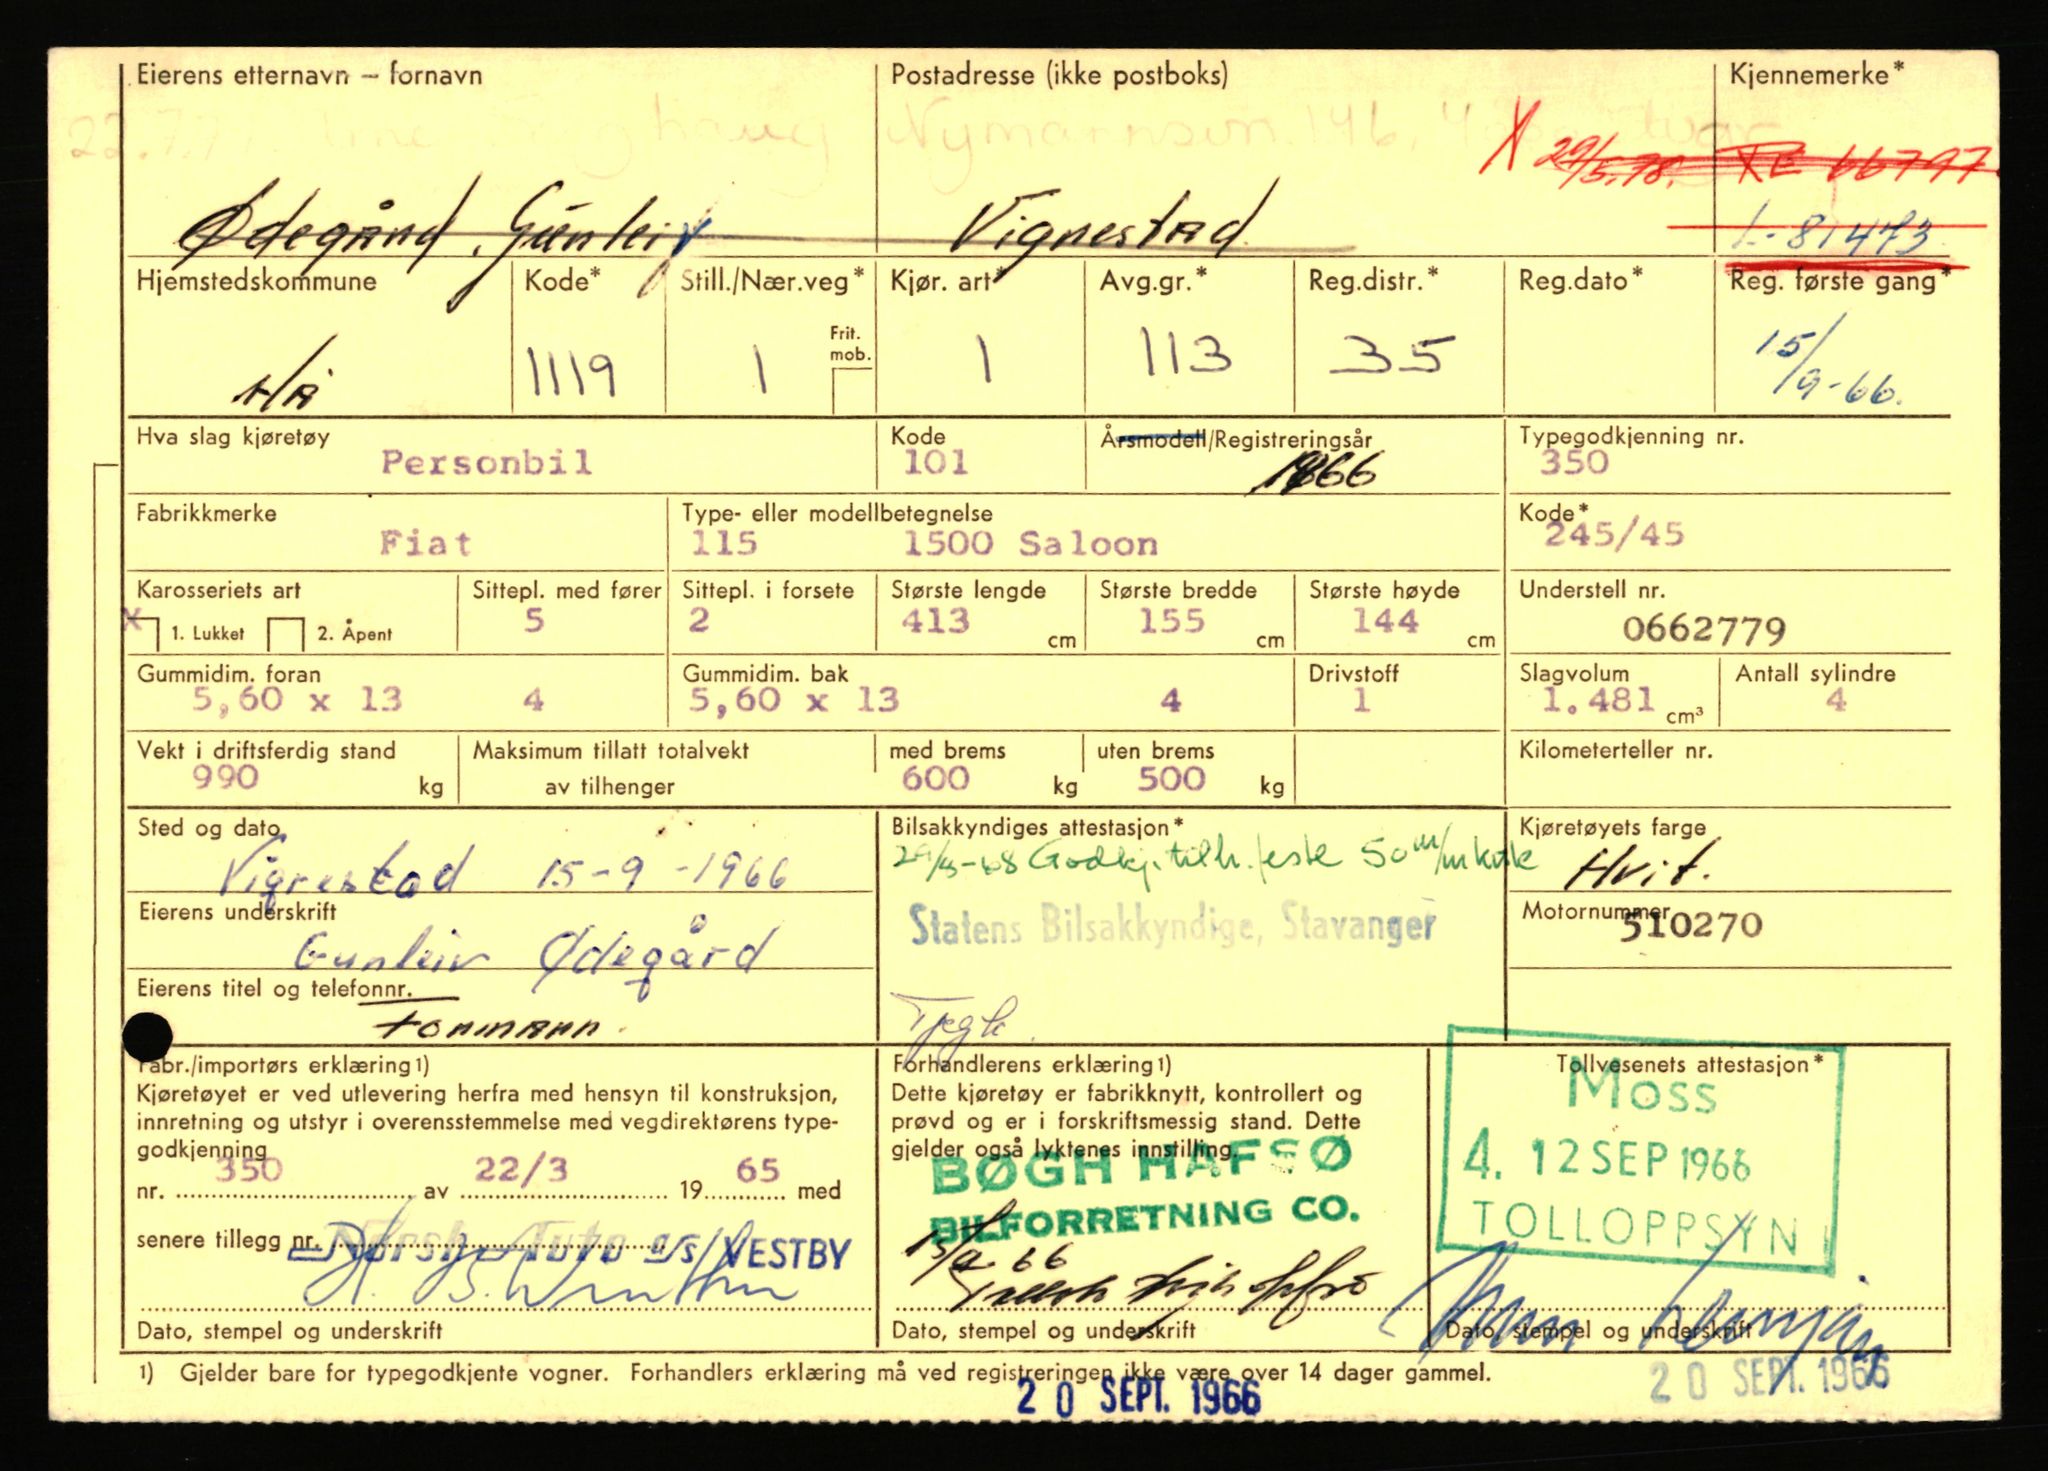 Eierens etternavn – fornavn Postadresse (ikke postboks) Kjennemerke*
22.7.7 haug Nymannsvn. 146, 4
X 29/5.78. RE 66797
Ødegård, Gunleiv Vigrestad L-81473
Hjemstedskommune Kode* Still./Nær.veg* Kjør. art* Avg.gr.* Reg.distr.* Reg.dato* Reg. første gang*
Frit. mob.
Hå 1119 1 1 113 35 15/9-66.
Hva slag kjøretøy Kode Årsmodell/Registreringsår Typegodkjenning nr.
Personbil 101 1966 350
Fabrikkmerke Type- eller modellbetegnelse Kode*
Fiat 115 1500 Saloon 245/45
Karosseriets art Sittepl. med fører Sittepl. i forsete Største lengde Største bredde Største høyde Understell nr.
x 1. Lukket 2. Åpent 5 2 413 cm 155 cm 144 cm 0662779
Gummidim. foran Gummidim. bak Drivstoff Slagvolum Antall sylindre
5,60 x 13 4 5,60 x 13 4 1 1.481 cm³ 4
Vekt i driftsferdig stand Maksimum tillatt totalvekt med brems uten brems Kilometerteller nr.
990 kg av tilhenger 600 kg 500 kg
Sted og dato Bilsakkyndiges attestasjon* Kjøretøyets farge
Vigrestad 15-9-1966 29/5-68 Godkj. tilh.feste 50 m/m kule Hvit.
Eierens underskrift Statens Bilsakkyndige, Stavanger Motornummer
Gunleiv Ødegård 510270
Eierens titel og telefonnr.
Formann.
Fabr./importørs erklæring 1) Forhandlerens erklæring 1) Tollvesenets attestasjon*
Kjøretøyet er ved utlevering herfra med hensyn til konstruksjon, Dette kjøretøy er fabrikknytt, kontrollert og MOSS
innretning og utstyr i overensstemmelse med vegdirektørens type- prøvd og er i forskriftsmessig stand. Dette
godkjenning gjelder også lyktenes innstilling. 4. 12 SEP 1966
nr. 350 av 22/3 19 65 med BØGH HAFSØ
senere tillegg nr. Norsk Auto a/s VESTBY BILFORRETNING CO. TOLLOPPSYN
15/9-66
Dato, stempel og underskrift Dato, stempel og underskrift Dato, stempel og underskrift
1) Gjelder bare for typegodkjente vogner. Forhandlers erklæring må ved registreringen ikke være over 14 dager gammel.
20 SEPT. 1966 20 SEPT. 1966